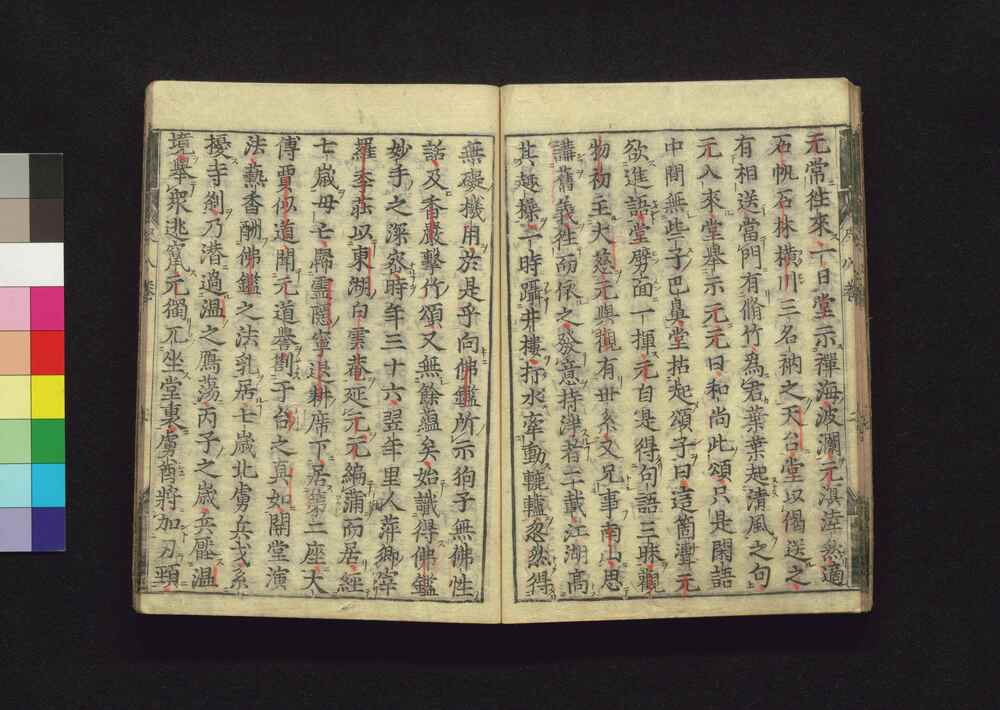 元常往來一日堂示禪海波瀾元滇涬然適
石帆石林橫川三名衲之天台堂以偈送之
有相送當門有脩竹爲君葉葉起清風之句
元入來堂擧示元元曰和尚此頌只是閑語
中間無些子巴鼻堂拈起頌子曰這箇聻元
欲進語堂劈面一揮元自是得句語三昧觀
物初主大慈元與觀有世系又兄事南山思
講舊義往而依之發意持淨者二載江湖高
其趣操一時躡井樓打水牽動轆轤忽然得
無礙機用於是乎向佛鑑所示狗子無佛性
話及香嚴擊竹頌又無餘蘊矣始識得佛鑑
妙手之深密時年三十六翌年里人萍鄉宰
羅季莊以東湖白雲菴延元元編蒲而居經
七歲母亡歸靈隱寧退耕席下居第二座大
傅賈似道聞元道譽劄于台之眞如開堂演
法爇香酬佛鑑之法乳居七歲北虜兵戈
擾寺乃潜過温之鴈蕩丙子之歲兵壓温
境擧衆逃竄元獨兀坐堂裏虜酋將加刃頸